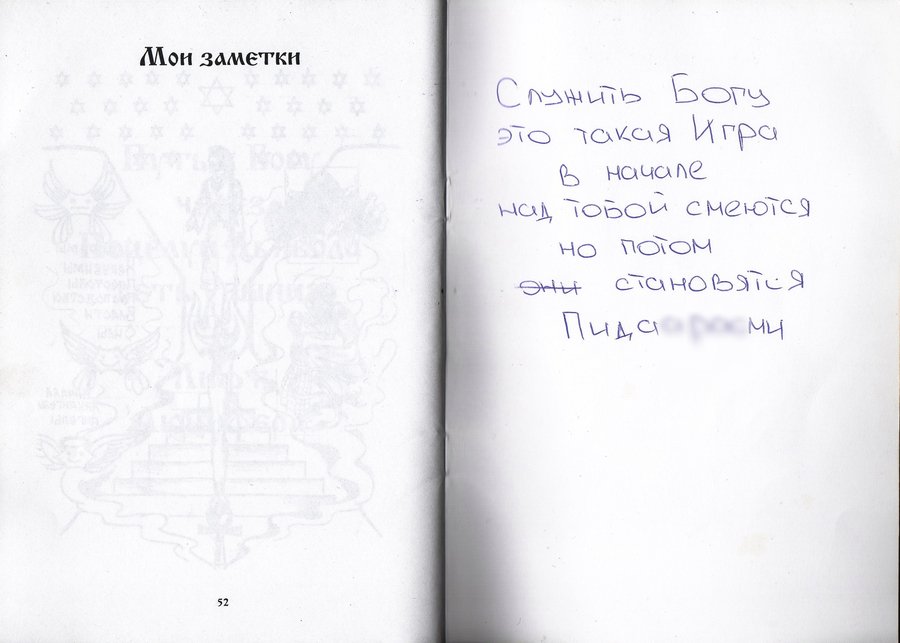 Мои заметки
52
Служить Богу
это такая Игра
в начале
над тобой смеются
но потом
они становятся